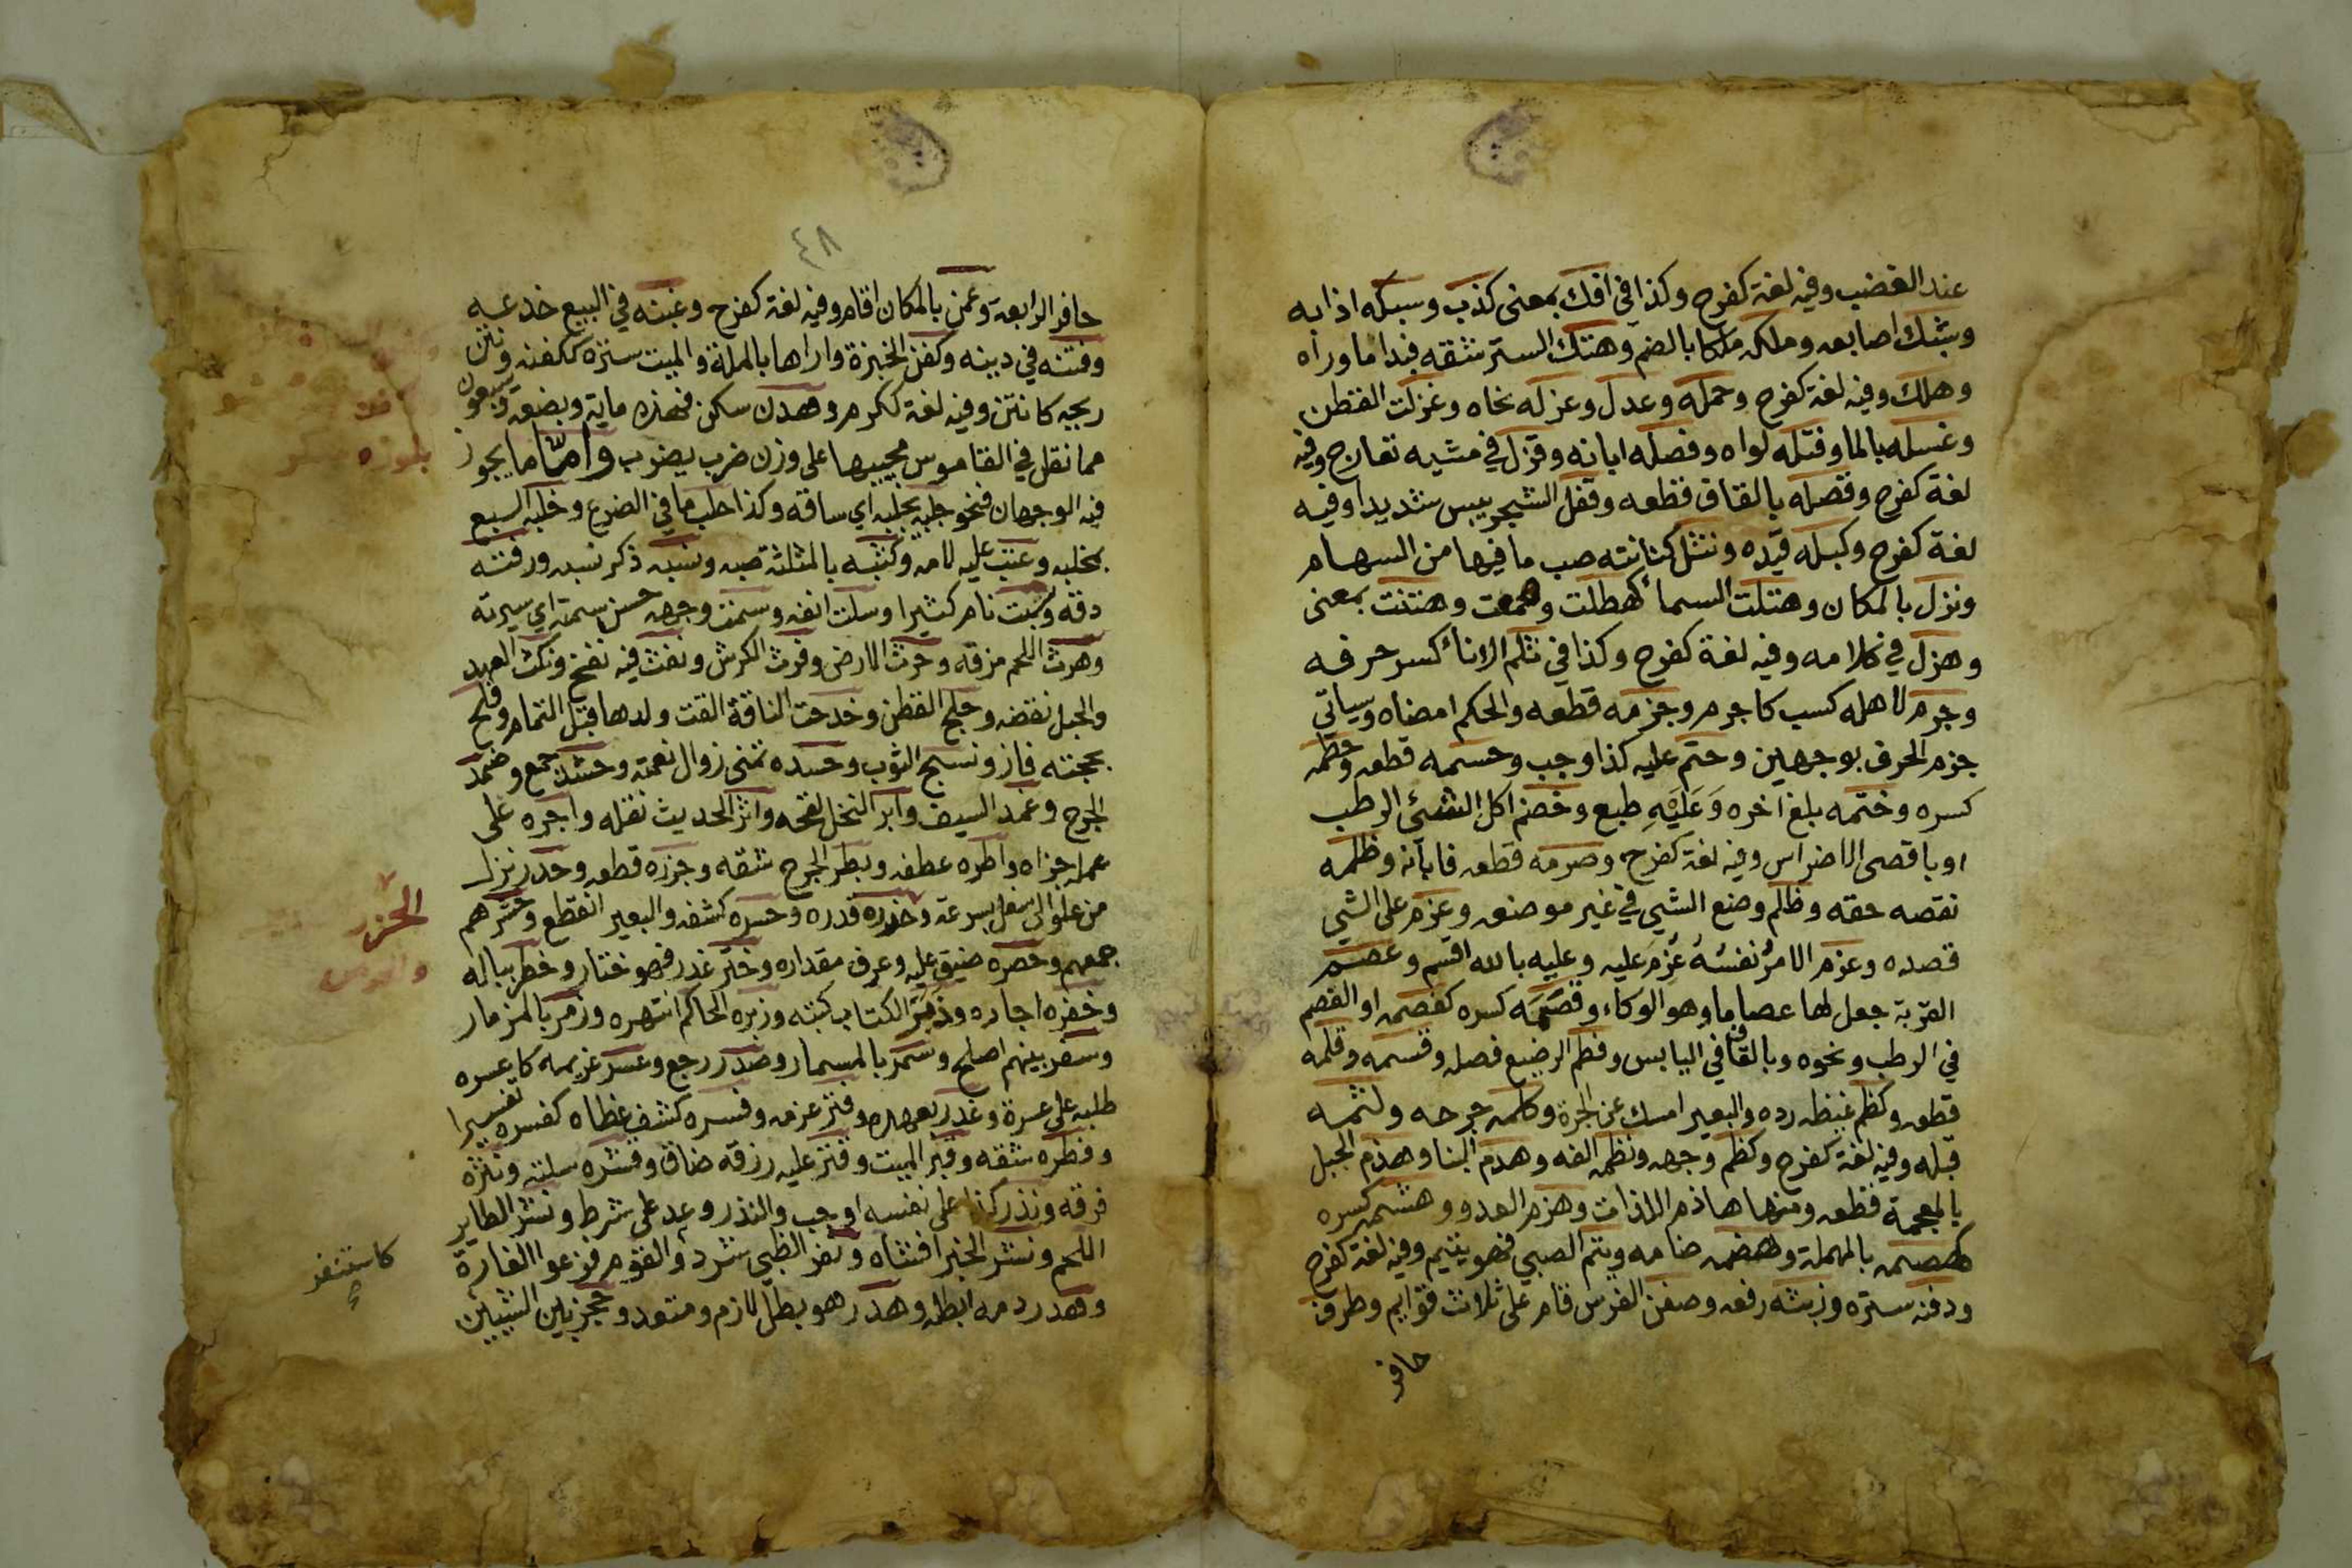 عند الغضب وفيه لغة كفرح وكذا في افك بمعنى كذب وسبكه اذابه
وشبك اصابعه وملكه ملكا بالضم وهتك الستر شقه فبدا ما وراه
وهلك وفيه لغة كفرح وحمله وعدل وعزله نحاه وغزلت القطن
وغسله بالما وفتله لواه وفصله ابانه وقزل في مشيه تعارج وفيه
لغة كفرح وقصله بالقاف قطعه وقفل الشجر يبس شديدا وفيه
لغة كفرح وكبله قيده ونثل كنانته صب ما فيها من السهام
ونزل بالمكان وهتلت السماء كهطلت وهمعت وهتنت بمعنى
وهزل في كلامه وفيه لغة كفرح وكذا في ثلم الاناء كسر حرفه
وجرم لاهله كسب كاجرم وجزمه قطعه والحكم امضاه وسياتي
جزم الحرف بوجهين وحتم عليه كذا اوجب وحسمه قطعه وحطمه
كسره وختمه بلغ اخره وَعَلَيْهِ طبع وخضم اكل الشئ الرطب
او باقصى الاضراس وفيه لغة كفرح وصرمه قطعه فابانه وظلمه
نقصه حقه وظلم وضع الشي في غير موضعه وعزم على الشي
قصده وعزم الامرُ نفسُهُ عُزِمَ عليه وعليه بالله اقسم وعصم
القربة جعل لها عصاما وهو الوكاء وقصَمَه كسره كفصمه او الفصم
في الرطب ونحوه وبالقاف في اليابس وفطم الرضيع فصله وقسمه وقلمه
قطعه وكظم غيظه رده والبعير امسك عن الجرة وكلمه جرحه ولثمه
قبله وفيه لغة كفرح وكظم وجهه ونظمه الفه وهدم البنا وهذم الحبل
بالمعجمة قطعه ومنها هاذم اللذات وهزم العدو وهشمه كسره
كهصمه بالمهملة وهضمه ضامه ويتم الصبي فهو يتيم وفيه لغة كفرح
ودفنه ستره وزبنه رفعه وصفن الفرس قام على ثلاث قوايم وطرف
حافر
٤٨
حافر الرابعة وعمن بالمكان اقام وفيه لغة كفرح وغبنه في البيع خدعه
وفتنه في دينه وكفن الخبزة واراها بالملة والميت ستره ككفنه ونتن
ريحه كانتن وفيه لغة ككرم وهدن سكن فهذه ماية وبضعة وسبعون
مما نقل في القاموس مجيبها على وزن ضرب يضرب واما ما يجوز
فيه الوجهان فنحو جلبه يجلبه اي ساقه وكذا حلب ما في الضرع وخلبه السبع
بمخلبه وعتب عليه لامه وكثبه بالمثلثة صبه ونسبه ذكر نسبه ورفته
دقه وسبت نام كثيرا وسلت انفه وسمت وجهه حسن سمته اي سيرته
وهرت اللحم مزقه وحرث الارض وفرث الكرش ونفث فيه نفخ ونكث العهد
والحبل نقضه وحلج القطن وخدجت الناقة القت ولدها قبل التمام وفلج
بحجته فاز ونسج الثوب وحسده تمنى زوال نعمته وحشد جمع وضمد
الجرح وغمد السيف وابر النخل لقحه واثر الحديث نقله واجره على
عمله جزاه واطره عطفه وبطر الجرح شقه وجزره قطعه وحدر نزل
من علو الى سفل بسرعة وحزره قدره وحسره كشفه والبعير انقطع وحشرهم
جمعهم وحصره ضيق عليه وعرف مقداره وختر غدر فهو ختار وخطر بباله
وخفره اجاره وذبر الكتاب كتبه وزبره الحاكم انتهره وزمر بالمزمار
وسفر بينهم اصلح وسمر بالمسمار وصدر رجع وعسر غريمه كاعسره
طلبه على عسرة وغدر بعهده وفتر عزمه وفسره كشف غطاه كفسره تفسيرا
وفطره شقه وقبر الميت وقتر عليه رزقه ضاق وقشره سلته ونثره
فرقه ونذر كذا على نفسه اوجب والنذر وعد على شرط ونسر الطاير
اللحم ونشر الخبر افشاه ونفر الظبي شرد والقوم فزعوا الغارة
وهدر دمه ابطله وهدر هو بطل لازم ومتعد وحجز بين الشيئين
الحزر
كاستنفر